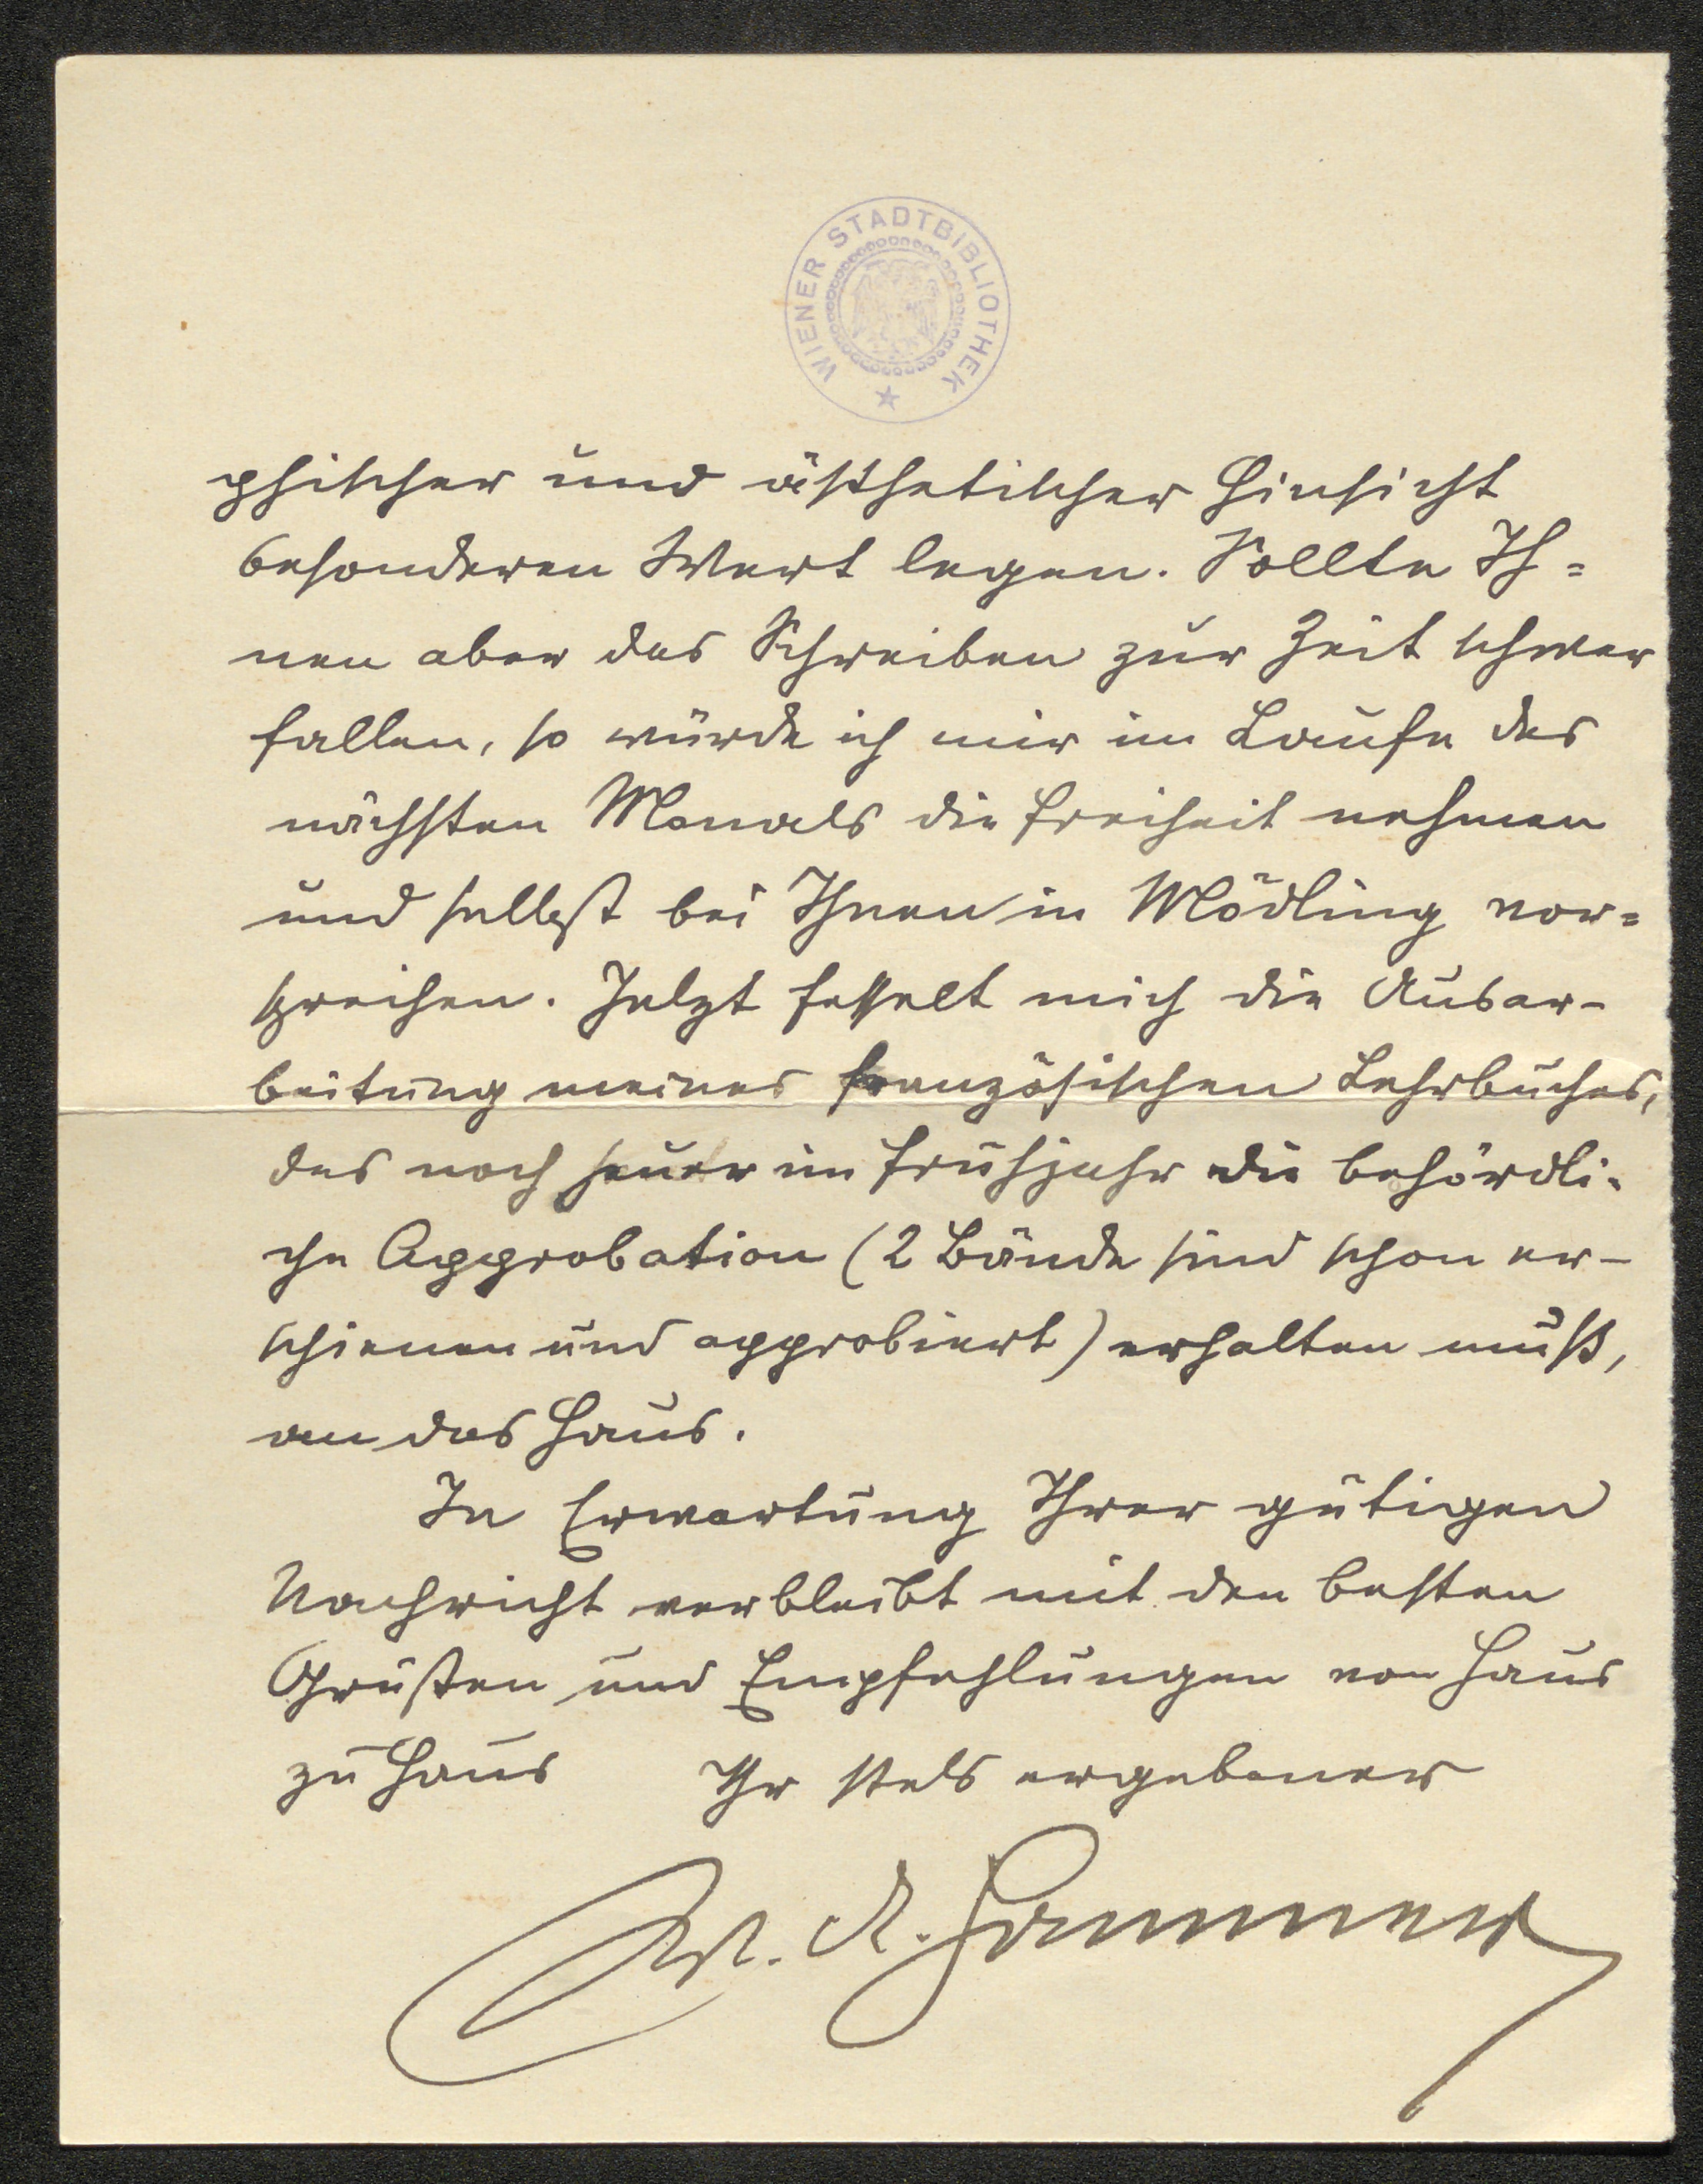 WIENER STADTBIBLIOTHEK
phischer und ästhetischer Hinsicht
besonderen Wert legen. Sollte Ih=
nen aber das Schreiben zur Zeit schwer
fallen, so würde ich mir im Laufe des
nächsten Monats die Freiheit nehmen
und selbst bei Ihnen in Mödling vor=
sprechen. Jetzt fesselt mich die Ausar-
beitung meines französischen Lehrbuches,
das noch heuer im Frühjahr die behördli-
che Approbation (2 Bände sind schon er-
schienen und approbiert) erhalten muß,
an das Haus.
In Erwartung Ihrer gütigen
Nachricht verbleibt mit den besten
Grüßen und Empfehlungen von Haus
zu Haus Ihr stets ergebener